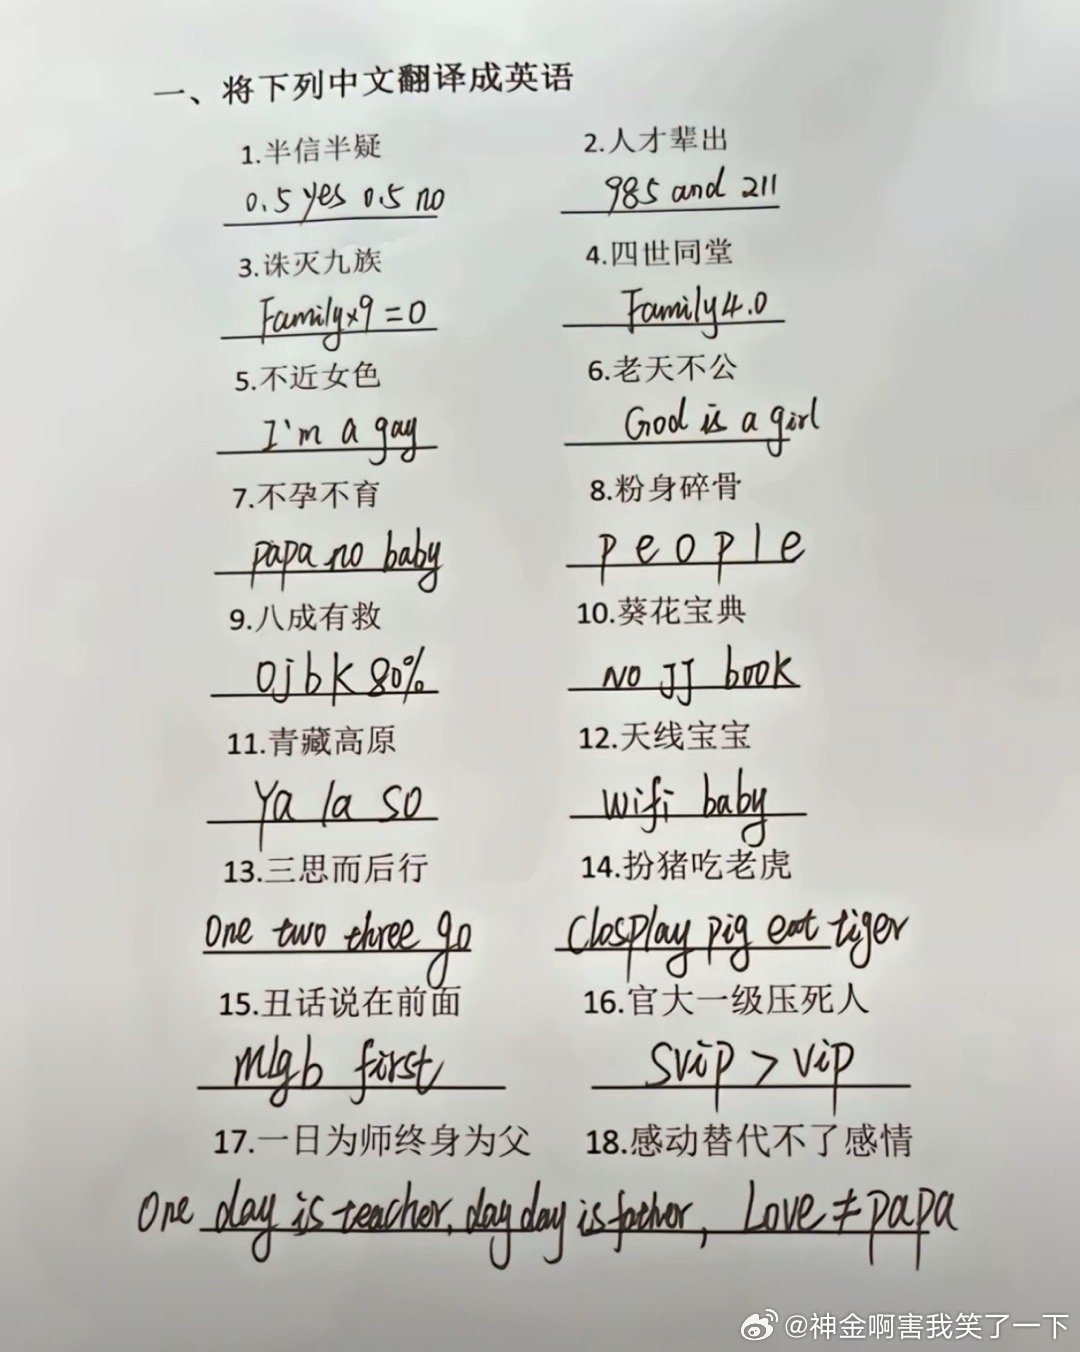 一、将下列中文翻译成英语
1.半信半疑 2.人才辈出
0.5 yes 0.5 no 985 and 211
3.诛灭九族 4.四世同堂
Family×9=0 Family4.0
5.不近女色 6.老天不公
I'm a gay God is a girl
7.不孕不育 8.粉身碎骨
papa no baby p e o p l e
9.八成有救 10.葵花宝典
Ojbk 80% NO JJ book
11.青藏高原 12.天线宝宝
Ya la so wifi baby
13.三思而后行 14.扮猪吃老虎
One two three go Closplay pig eat tiger
15.丑话说在前面 16.官大一级压死人
mlgb first svip > vip
17.一日为师终身为父 18.感动替代不了感情
One day is teacher, day day is father, Love≠papa
@神金啊害我笑了一下